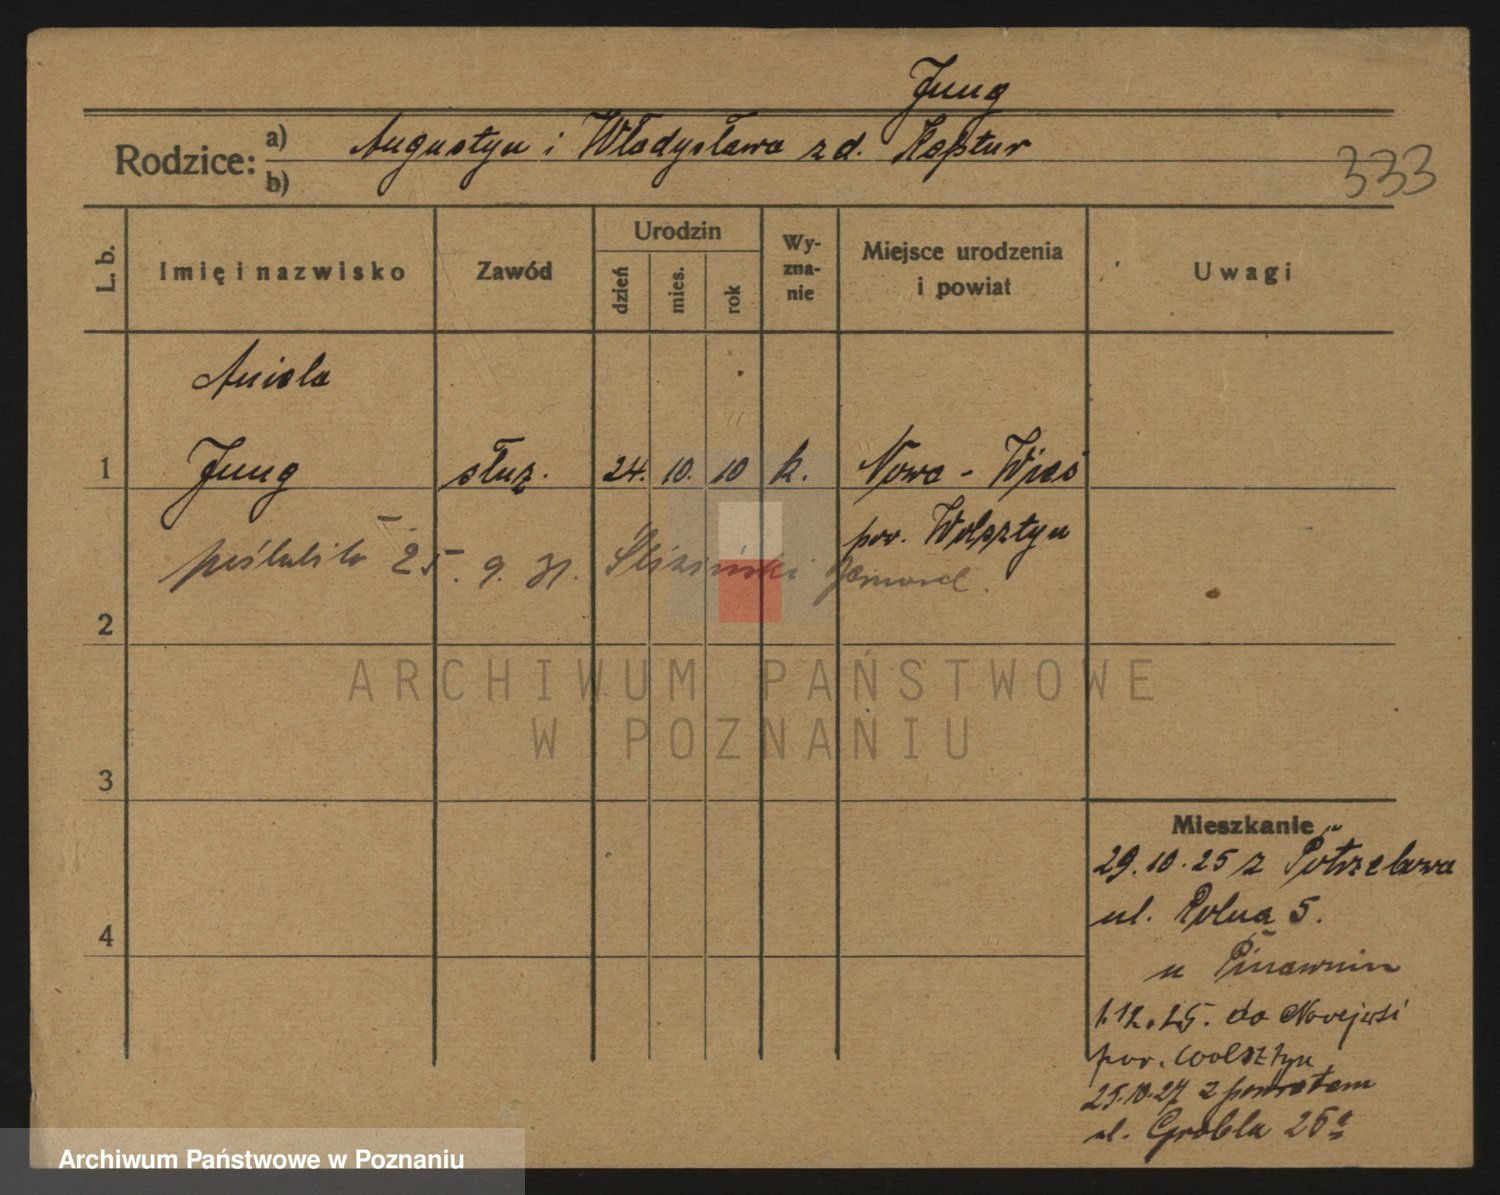 Jung
Rodzice: a) Augustyn i Władysława z d. Kaptur
b)
333
L. b.
Imię i nazwisko
Zawód
Urodzin
dzień
mies.
rok
Wy-
zna-
nie
Miejsce urodzenia
i powiat
Uwagi
Aniela
1 Jung służ. 24. 10. 10 k. Nowa - Wieś
pow. Wolsztyn
poślubiła 25. 9. 31.
2
3
4
ARCHIWUM PAŃSTWOWE
W POZNANIU
Mieszkanie
29. 10. 25 z
ul. Polna 5.
u
1.12.25. do Nowejwsi
pow. Wolsztyn
25.10.27 z powrotem
ul. Grobla 25a
Archiwum Państwowe w Poznaniu